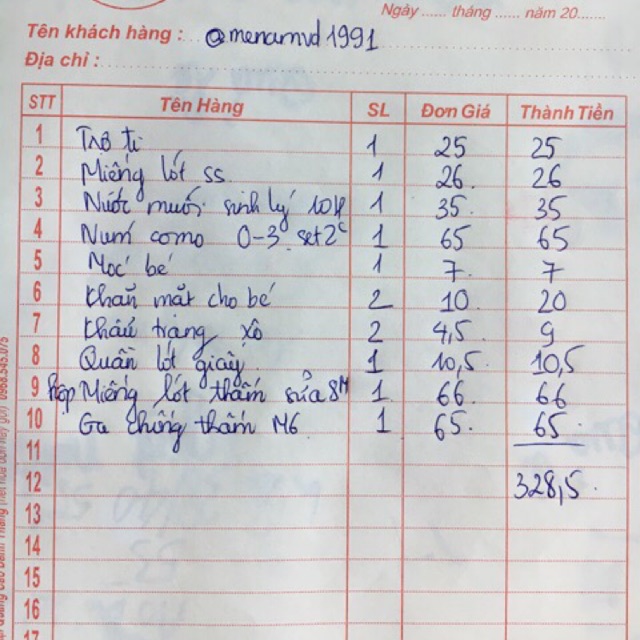 Ngày ...... tháng ...... năm 20.......
Tên khách hàng : @menamvd1991
Địa chỉ :
STT Tên Hàng SL Đơn Giá Thành Tiền
1 Trở ti 1 25 25
2 Miếng lót ss 1 26 26
3 Nước muối sinh lý 1 35 35
4 Num como 0-3 set2c 1 65 65
5 Moc bé 1 7 7
6 Khăn mặt cho bé 2 10 20
7 Khẩu trang xô 2 4,5 9
8 Quần lót giấy 1 10,5 10,5
9 hộp Miếng lót thấm sữa 8M 1 66 66
10 Ga chống thấm M6 1 65 65
11
12 328,5
13
14
15
16
17
0968.545.075